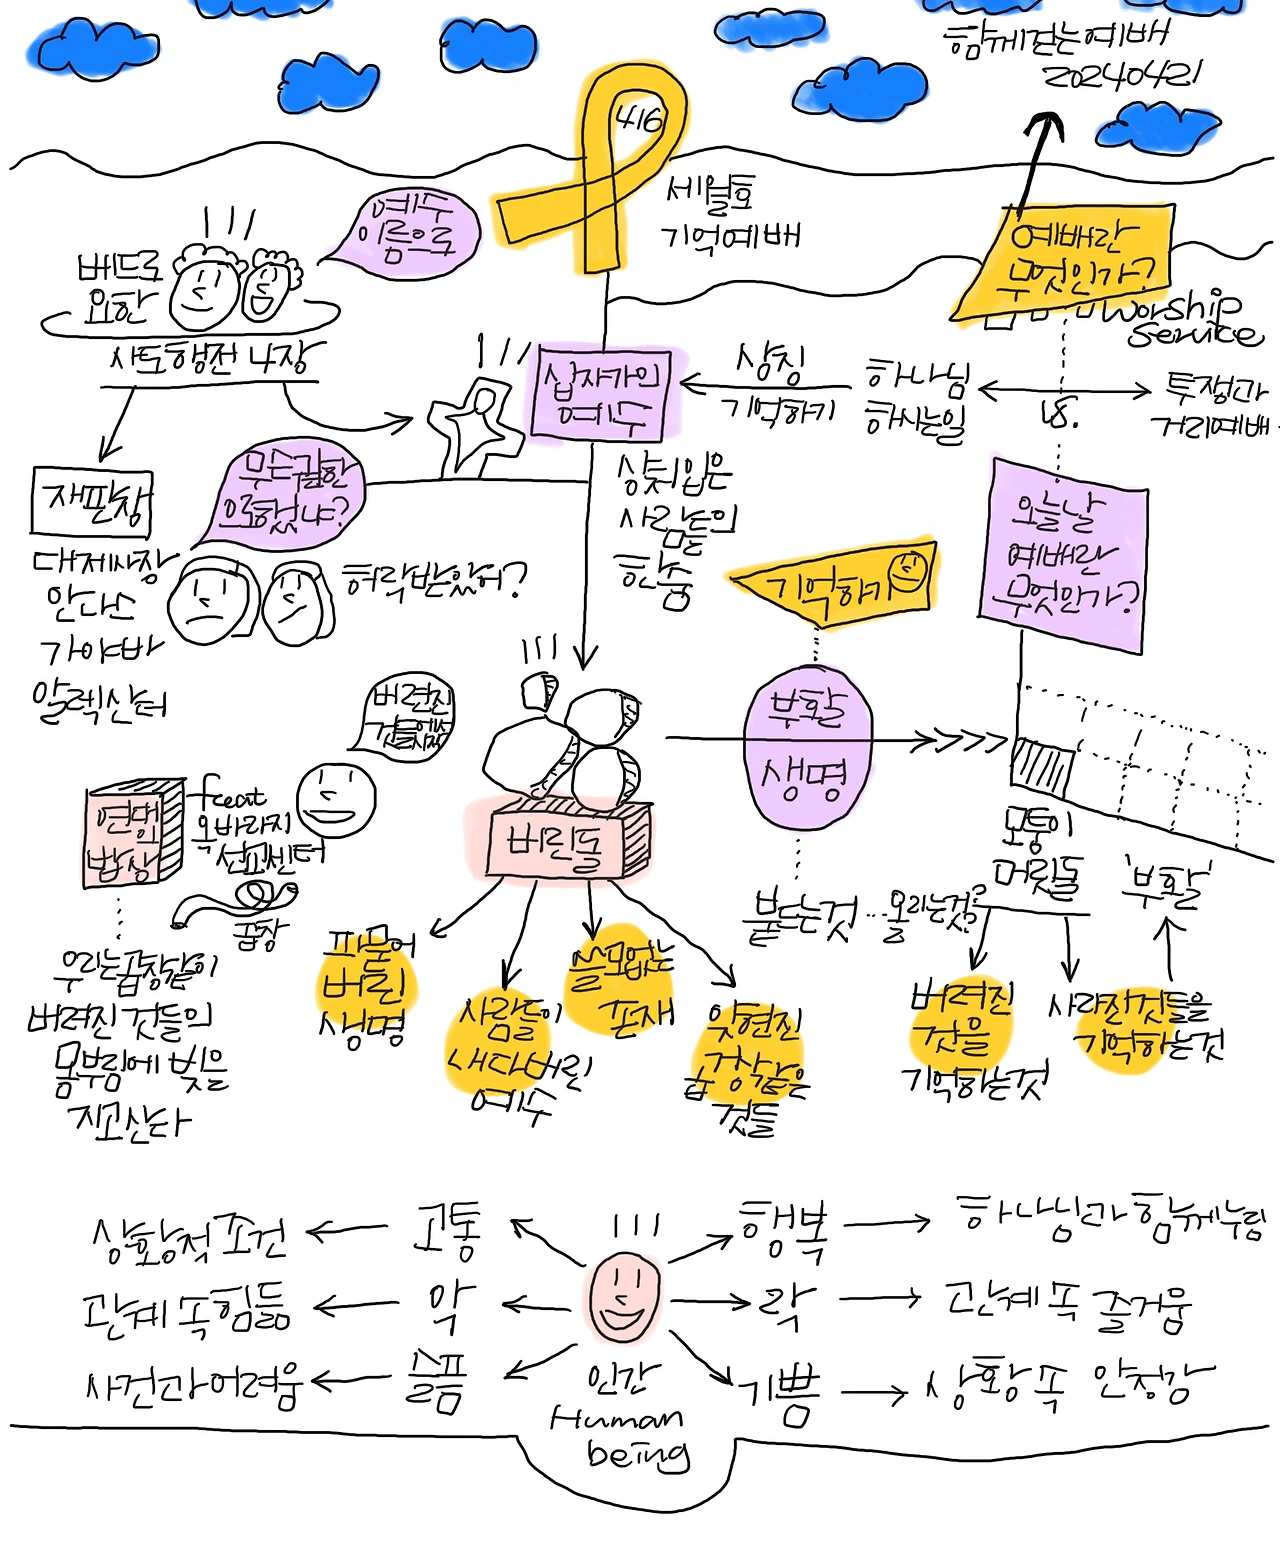 함께걷는예배
20240421
416
세월호
기억예배
예수
이름으로
베드로
요한
사도행전 4장
예배란
무엇인가?
worship
service
십자가인
예수
상징
기억하기
하나님
하시는일
vs.
투쟁과
거리예배
재판장
무슨권한
으로했냐?
대제사장
안나스
가야바
알렉산더
허락받았어?
상처입은
사람들의
한숨
기억하기
오늘날
예배란
무엇인가?
버려진
부활
생명
연명의
밥상
feat
옥바라지
선교센터
곱창
버린돌
모퉁이
머릿돌
'부활'
붙드는것
올리는것?
우리는곱창같이
버려진 것들의
몸부림에 빚을
지고산다
파묻어
버린
생명
사람들이
내다버린
예수
쓸모없는
존재
잊혀진
곱창같은
것들
버려진
것을
기억하는것
사라진것들을
기억하는것
상황적 조건
고통
행복
하나님과 함께누림
관계 속 힘듦
악
락
관계 속 즐거움
사건과어려움
슬픔
기쁨
상황 속 안정감
인간
Human
being